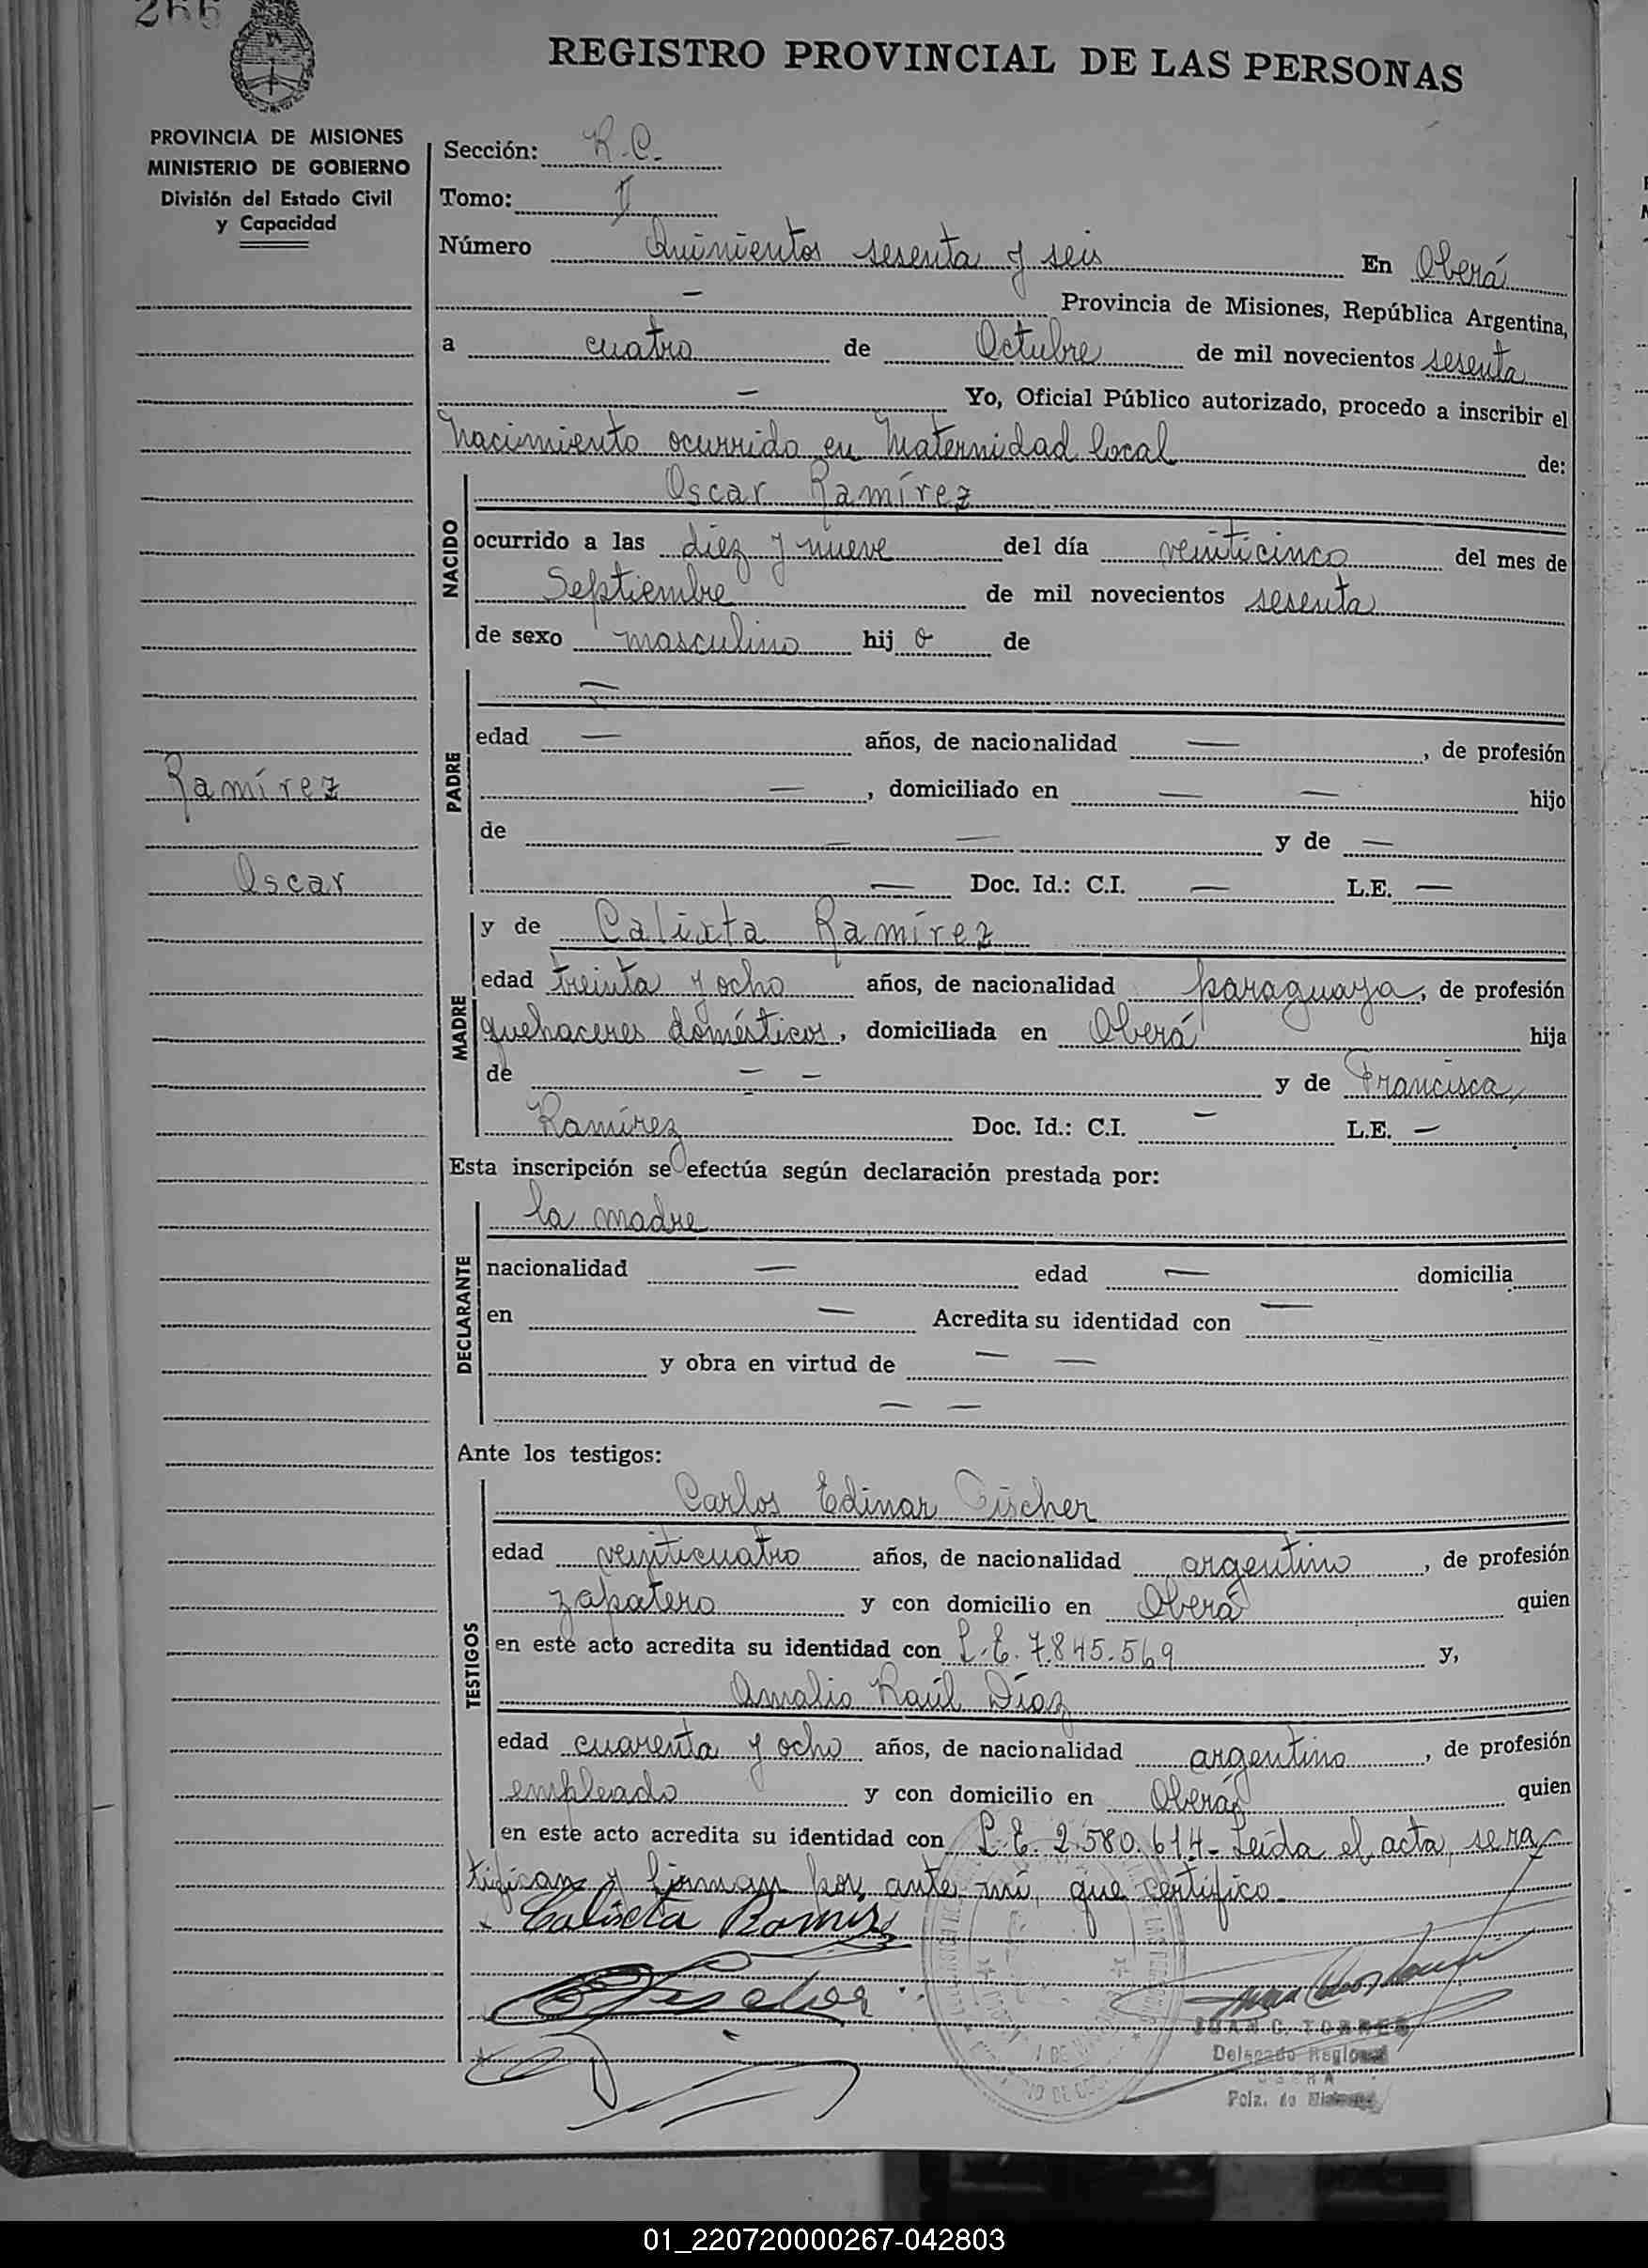 266
REGISTRO PROVINCIAL DE LAS PERSONAS
PROVINCIA DE MISIONES
MINISTERIO DE GOBIERNO
División del Estado Civil
y Capacidad
Sección: R.C.
Tomo: I
Número Quinientos sesenta y seis En Oberá
— Provincia de Misiones, República Argentina,
a cuatro de Octubre de mil novecientos sesenta
— Yo, Oficial Público autorizado, procedo a inscribir el
nacimiento ocurrido en Maternidad local de:
NACIDO
Oscar Ramírez
ocurrido a las diez y nueve del día veinticinco del mes de
Septiembre de mil novecientos sesenta
de sexo masculino hij o de
PADRE
—
edad — años, de nacionalidad —, de profesión
—, domiciliado en — — hijo
de — — y de —
— Doc. Id.: C.I. — L.E. —
Ramírez
Oscar
MADRE
y de Calixta Ramírez
edad treinta y ocho años, de nacionalidad paraguaya, de profesión
quehaceres domésticos, domiciliada en Oberá hija
de — — y de Francisca
Ramírez Doc. Id.: C.I. — L.E. —
Esta inscripción se efectúa según declaración prestada por:
DECLARANTE
la madre
nacionalidad — edad — domicilia
en — Acredita su identidad con —
y obra en virtud de — —
— —
Ante los testigos:
TESTIGOS
Carlos Edinar Fischer
edad veinticuatro años, de nacionalidad argentino, de profesión
zapatero y con domicilio en Oberá quien
en este acto acredita su identidad con L.E. 7.845.569 y,
Amalio Raúl Díaz
edad cuarenta y ocho años, de nacionalidad argentino, de profesión
empleado y con domicilio en Oberá quien
en este acto acredita su identidad con L.E. 2.580.614- Leída el acta, se ra-
tifican y firman por ante mí, que certifico.-
Calicta Ramirez
JUAN C. TORRES
Delegado Regional
01_220720000267-042803